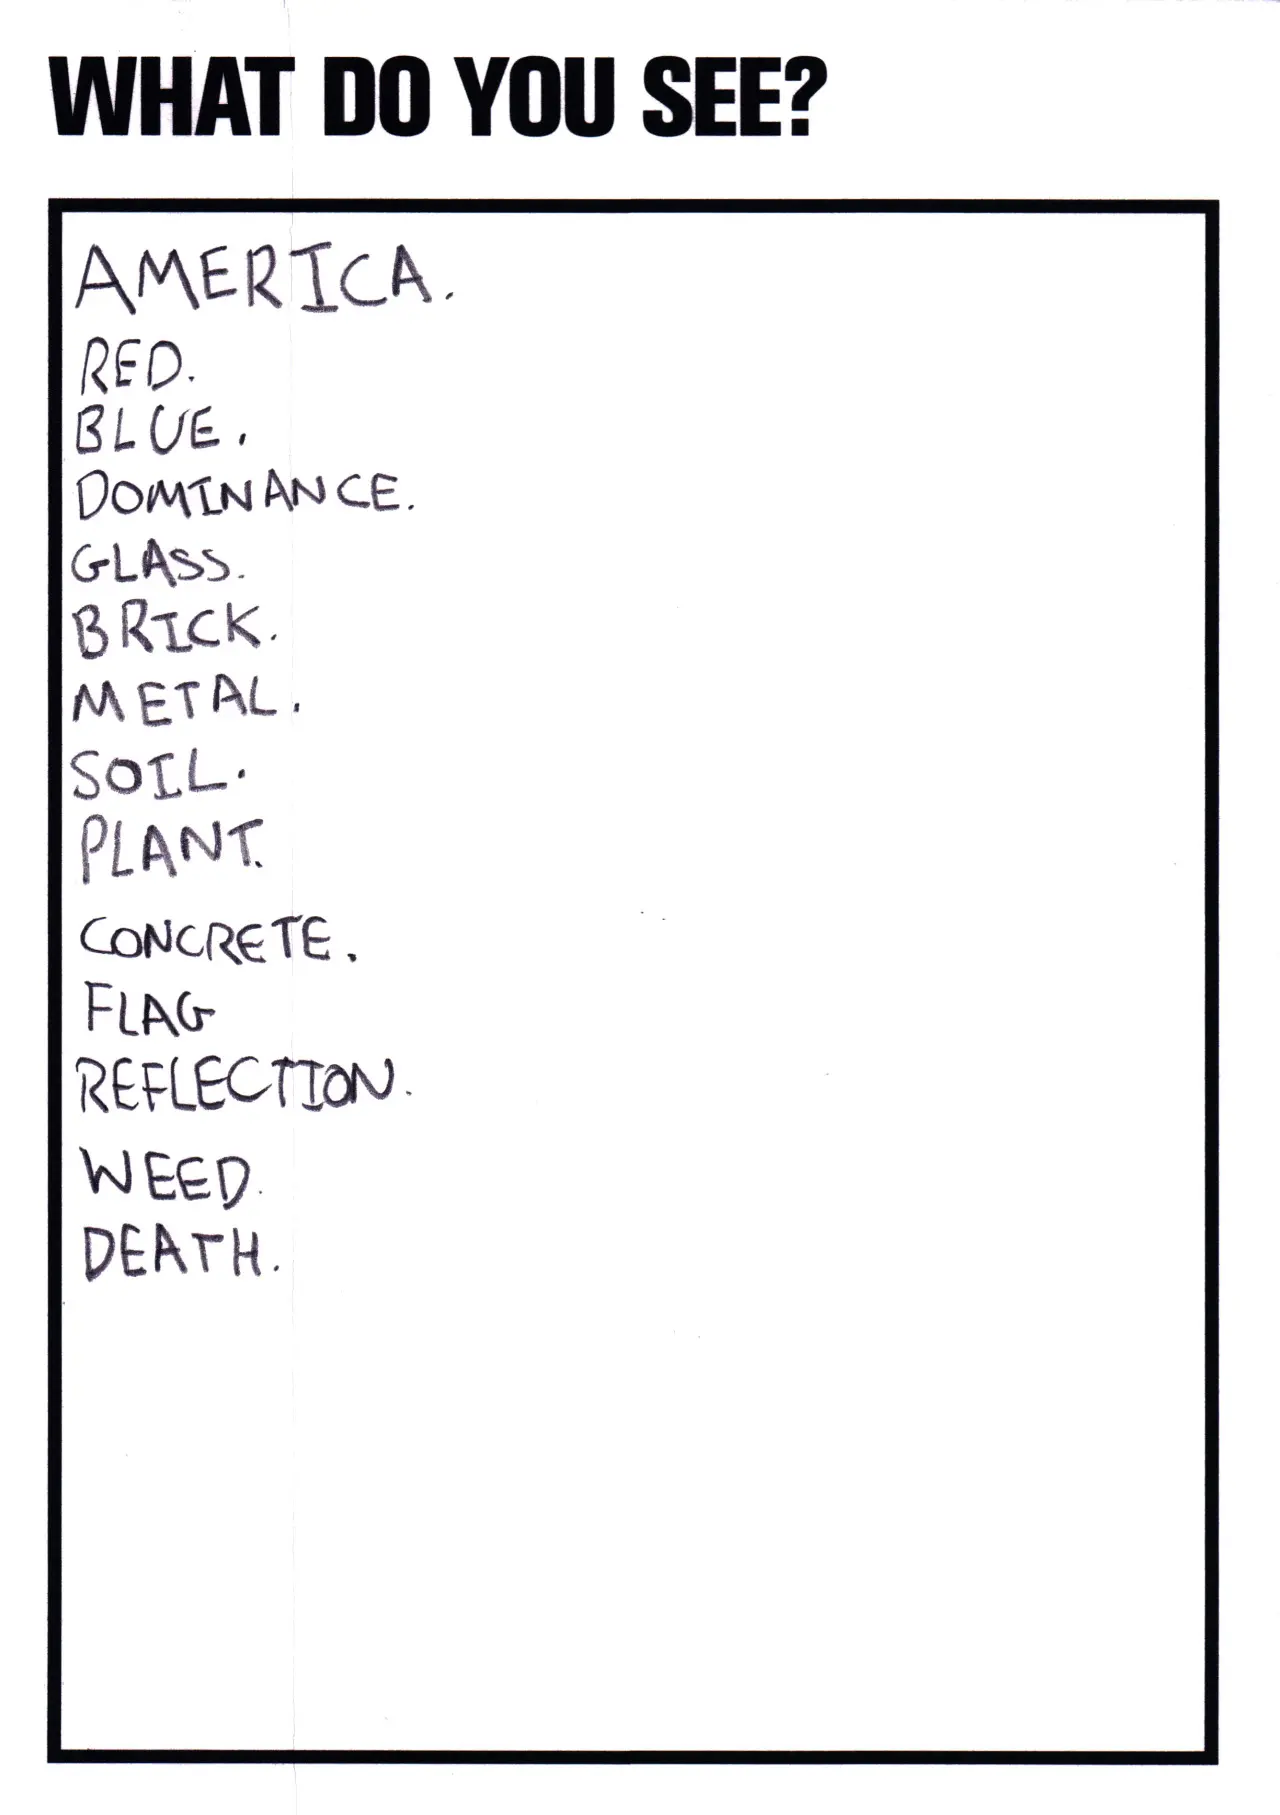 WHAT DO YOU SEE?
AMERICA.
RED.
BLUE.
DOMINANCE.
GLASS.
BRICK.
METAL.
SOIL.
PLANT.
CONCRETE.
FLAG
REFLECTION.
WEED.
DEATH.